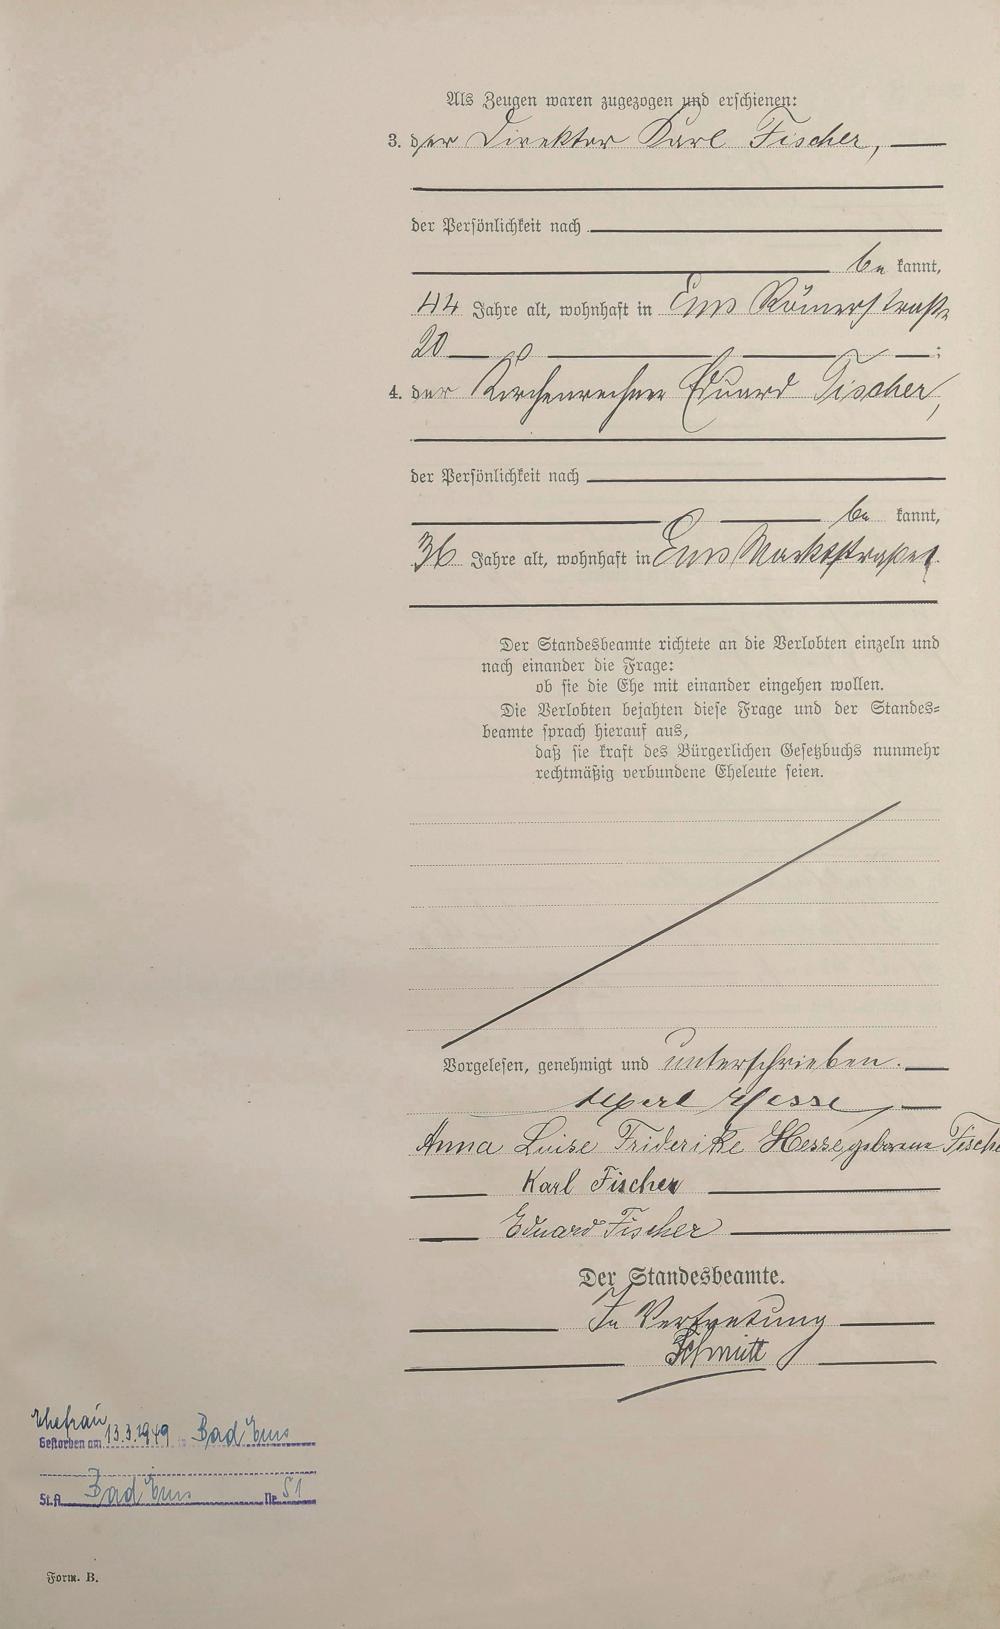 Als Zeugen waren zugezogen und erschienen:
3. der Direktor Karl Fischer,
der Persönlichkeit nach
be kannt,
44 Jahre alt, wohnhaft in Ems Römerstraße
20
4. der Kirchenrechner Eduard Fischer,
der Persönlichkeit nach
be kannt,
36 Jahre alt, wohnhaft in Ems Marktstraße
Der Standesbeamte richtete an die Verlobten einzeln und
nach einander die Frage:
ob sie die Ehe mit einander eingehen wollen.
Die Verlobten bejahten diese Frage und der Standes=
beamte sprach hierauf aus,
daß sie kraft des Bürgerlichen Gesetzbuchs nunmehr
rechtmäßig verbundene Eheleute seien.
Vorgelesen, genehmigt und unterschrieben.
Hesse
Anna Luise Friderike Hesse geborene Fische
Karl Fischer
Eduard Fischer
Der Standesbeamte.
In Vertretung
Schmitt
Ehefrau
Gestorben am 13.3.1949 in Bad Ems
St.A. Bad Ems Nr. 51
Form. B.